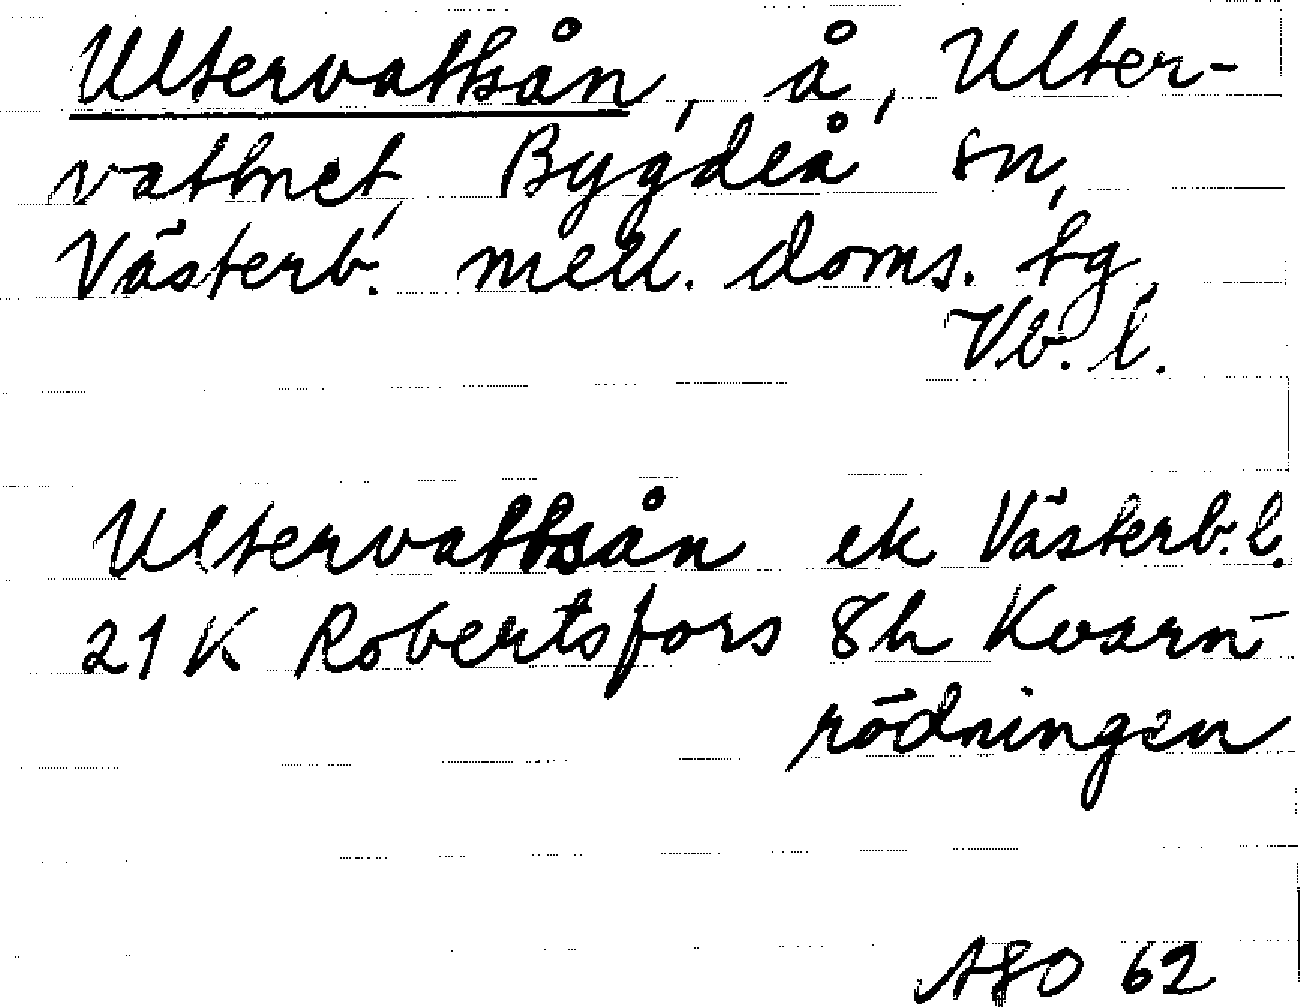 Ultervattsån, å, Ulter-
vattnet, Bygdeå sn,
Västerb. mell. doms. tg,
Vb. l.
Ultervattsån ek Västerb. l.
21 K Robertsfors 8h Kvarn-
rödningen
62